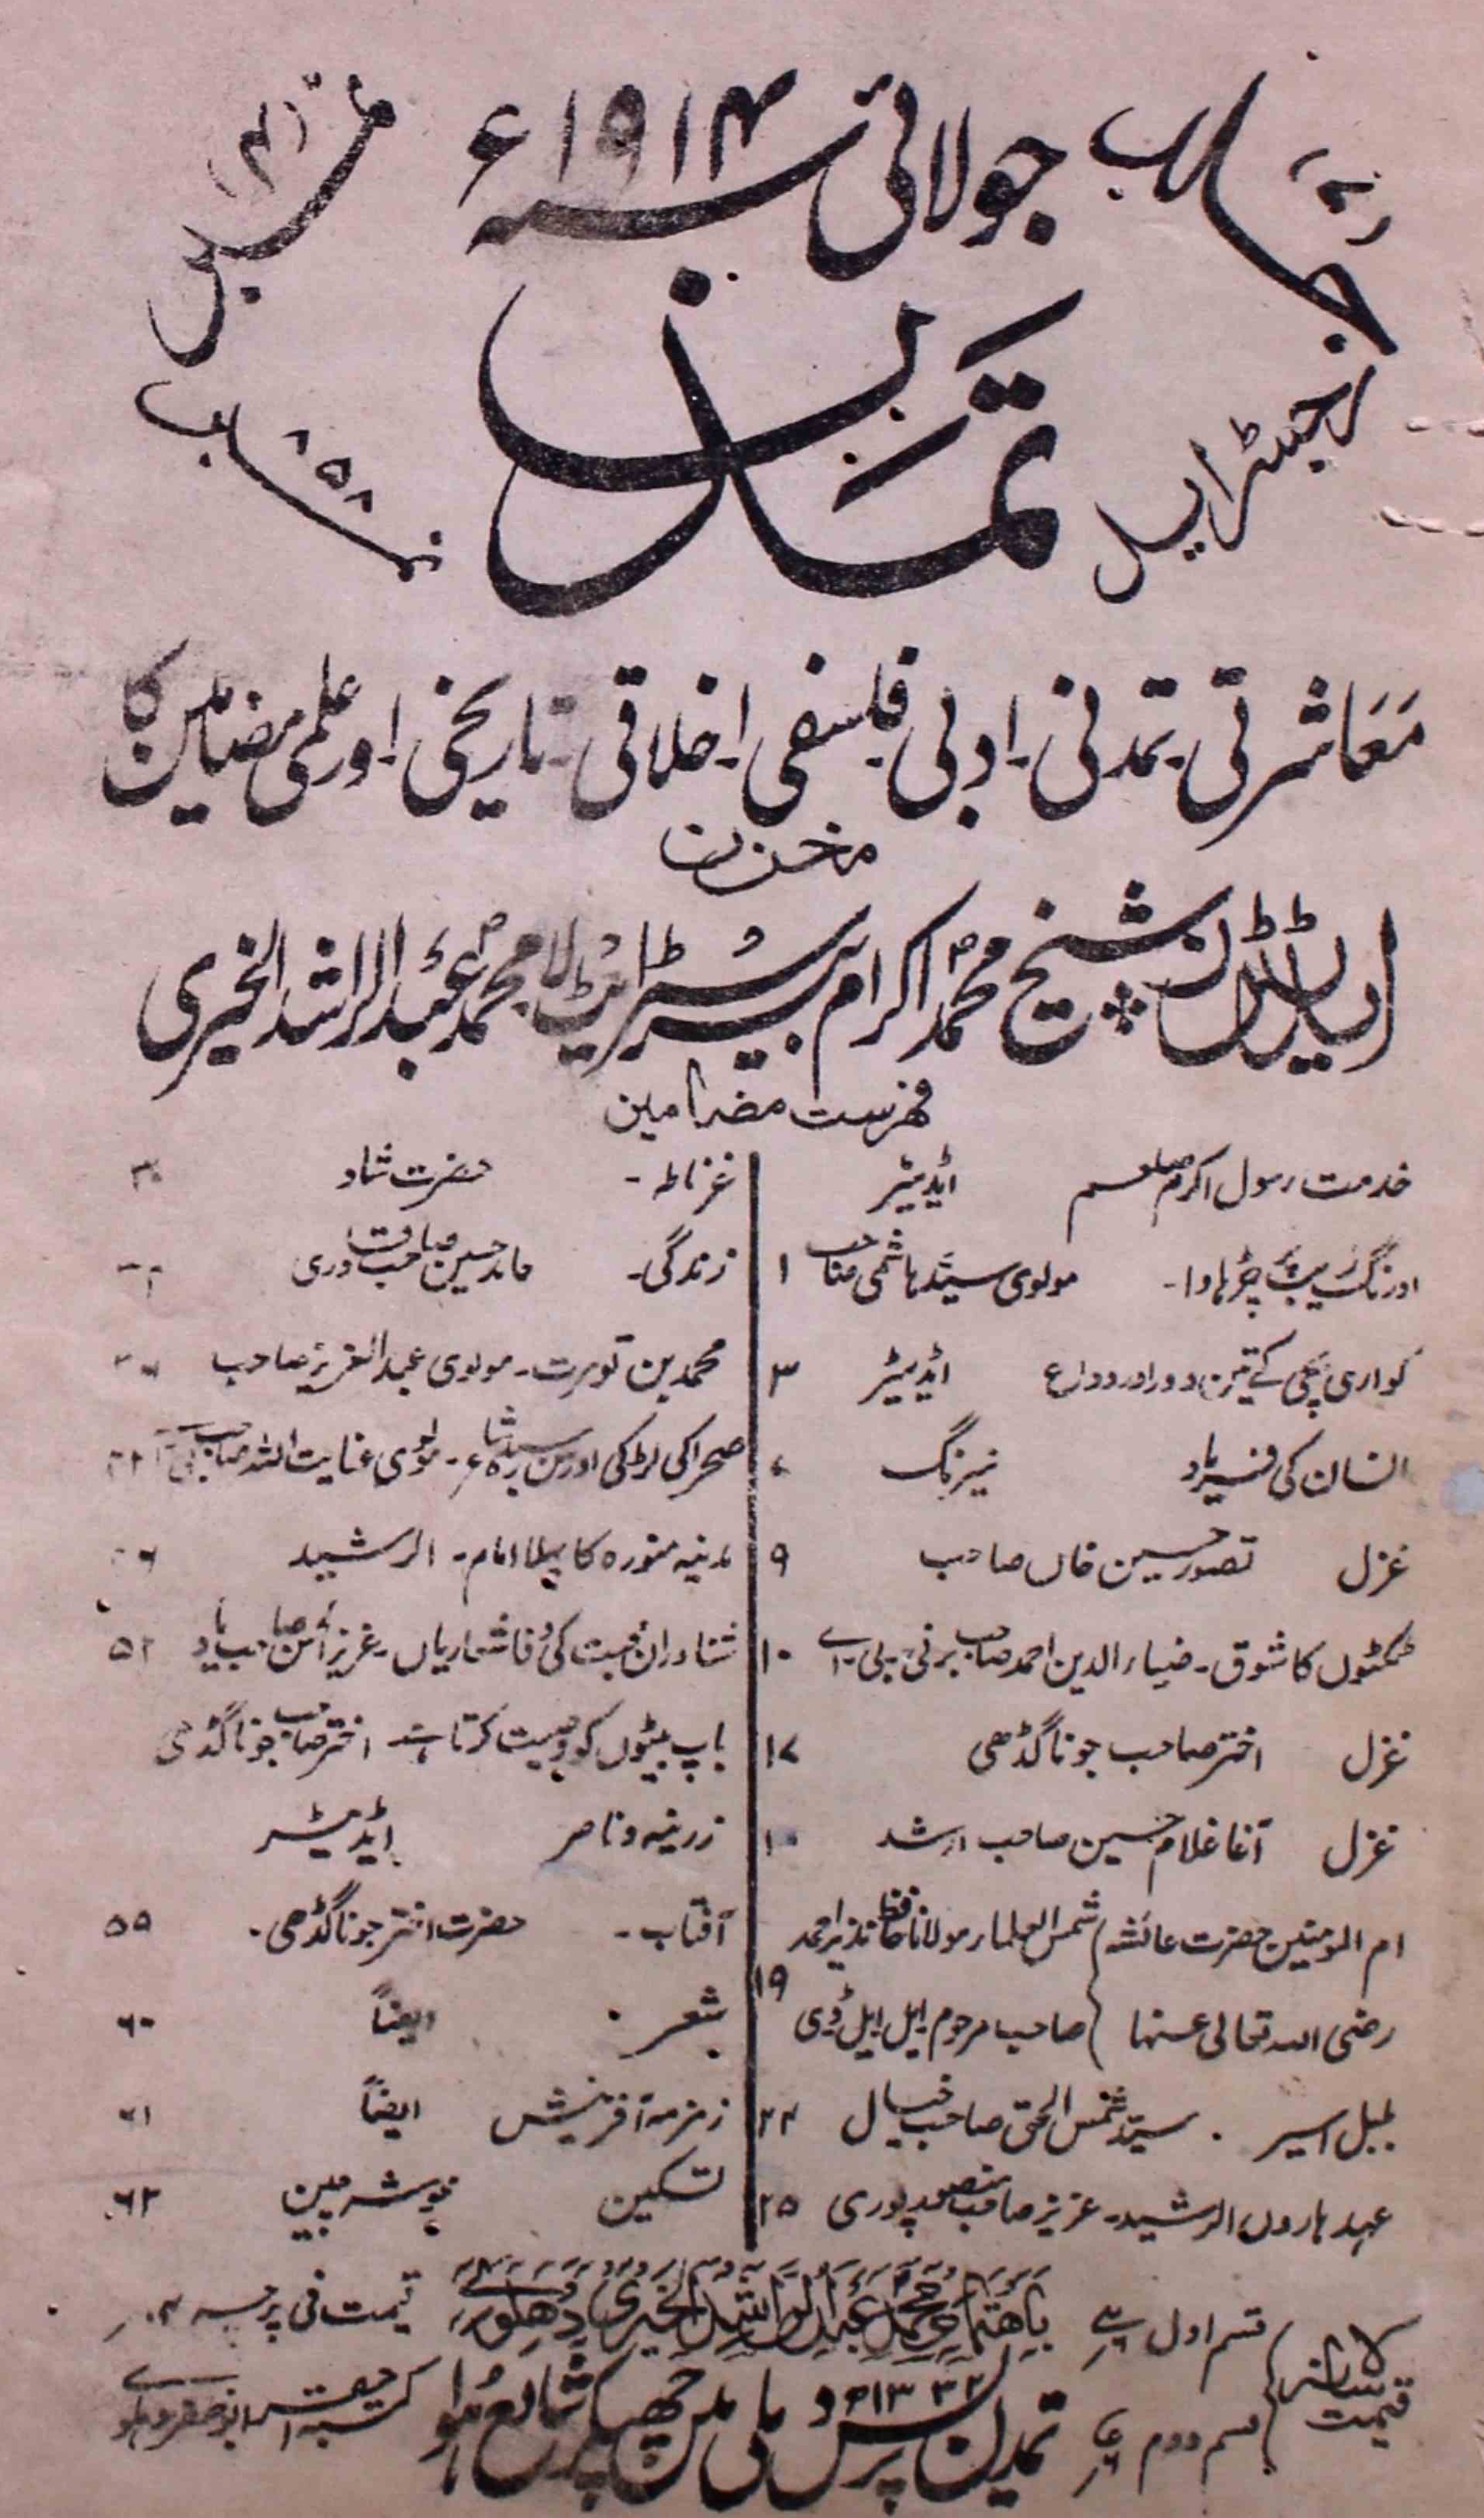 جولائی سنہ ۱۹۱۴ء
جلد
نمبر (۴)
تمدن
رجسٹرڈ ایل
نمبر ۸۵۸
معاشرتی۔ تمدنی۔ ادبی فلسفی۔ اخلاقی۔ تاریخی۔ اور علمی مضامین کا
مخزن
ایڈیٹران شیخ محمد اکرام بیرسٹر ایٹ لا محمد عبدالراشد الخیری
فہرست مضامین
خدمت رسول اکرم صلعم ایڈیٹر
اورنگ زیب پر چڑہاوا۔ مولوی سید ہاشمی صاحب ۱
کواری بچی کے تین دور اور وداع ایڈیٹر ۳
انسان کی فریاد نیرنگ
غزل تصور حسین خاں صاحب ۹
ٹکٹوں کا شوق۔ ضیاء الدین احمد صاحب برنی۔ بی۔ اے ۱۰
غزل اختر صاحب جوناگڈھی ۱۷
غزل آغا غلام حسین صاحب ارشد
ام المومنین حضرت عائشہ شمس العلماء مولانا حافظ نذیر احمد
رضی اللہ تعالی عنہا صاحب مرحوم ایل ایل ڈی ۱۹
بلبل اسیر۔ سید شمس الحق صاحب خیال ۲۴
عہد ہارون الرشید۔ عزیز صاحب منصور پوری ۲۵
غرناطہ۔ حضرت شاد ۳۰
زندگی۔ حامد حسین صاحب قادری
محمد بن تومرت۔ مولوی عبدالعزیز صاحب
صحرا کی لڑکی اور سن رسیدہ شاعر۔ مولوی عنایت اللہ صاحب بی اے
مدنیہ منورہ کا پہلا امام۔ الرشید
شناوران محبت کی وفا شعاریاں۔ عزیز الحسن صاحب ۵۲
باپ بیٹوں کو وصیت کرتا ہے۔ اختر صاحب جوناگڈھی
زرینہ و ناصر ایڈیٹر
آفتاب۔ حضرت اختر جوناگڈھی۔ ۵۹
شعر۔ ایضاً ۶۰
زمزمہ آفرینش ایضاً ۶۱
تسکین خوشہ چین ۶۲
قیمت سالانہ قسم اول
قسم دوم
باہتمام محمد عبدالراشد الخیری دہلوی
قیمت فی پرچہ ۴؍
۱۳۳۲
تمدن پریس دہلی میں چھپکر شائع ہوا